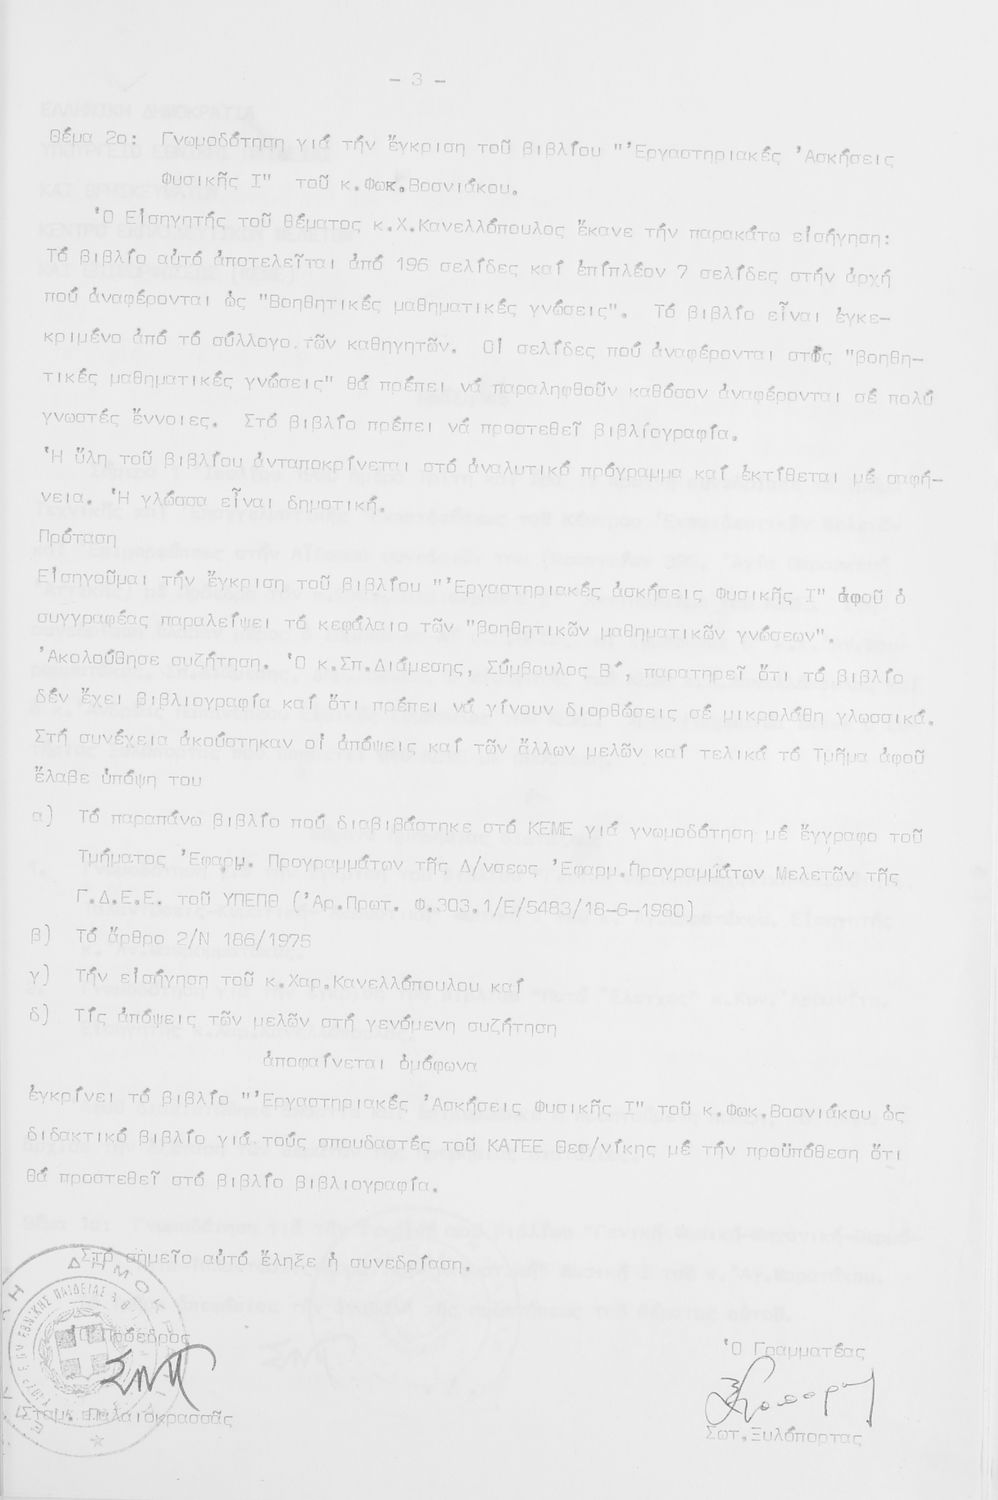 - 3 -
Θέμα 2ο: Γνωμοδότηση γιά τήν ἔγκριση τοῦ βιβλίου "Ἐργαστηριακές Ἀσκήσεις
Φυσικῆς Ι" τοῦ κ.Φωκ.Βοσνιάκου.
Ὁ Εἰσηγητής τοῦ θέματος κ.Χ.Κανελλόπουλος ἔκανε τήν παρακάτω εἰσήγηση:
Τό βιβλίο αὐτό ἀποτελεῖται ἀπό 196 σελίδες καί ἐπίπλέον 7 σελίδες στήν ἀρχή
πού ἀναφέρονται ὡς "Βοηθητικές μαθηματικές γνώσεις". Τό βιβλίο εἶναι ἐγκε-
κριμένο ἀπό τό σύλλογο τῶν καθηγητῶν. Οἱ σελίδες πού ἀναφέρονται στίς "βοηθη-
τικές μαθηματικές γνώσεις" θά πρέπει νά παραληφθοῦν καθόσον ἀναφέρονται σέ πολύ
γνωστές ἔννοιες. Στό βιβλίο πρέπει νά προστεθεῖ βιβλίογραφία.
Ἡ ὕλη τοῦ βιβλίου ἀνταποκρίνεται στό ἀναλυτικό πρόγραμμα καί ἐκτίθεται μέ σαφή-
νεια. Ἡ γλώσσα εἶναι δημοτική.
Πρόταση
Εἰσηγοῦμαι τήν ἔγκριση τοῦ βιβλίου "Ἐργαστηριακές ἀσκήσεις Φυσικῆς Ι" ἀφοῦ ὁ
συγγραφέας παραλείψει τό κεφάλαιο τῶν "βοηθητικῶν μαθηματικῶν γνώσεων".
Ἀκολούθησε συζήτηση. Ὁ κ.Σπ.Διάμεσης, Σύμβουλος Β΄, παρατηρεῖ ὅτι τό βιβλίο
δέν ἔχει βιβλιογραφία καί ὅτι πρέπει νά γίνουν διορθώσεις σέ μικρολάθη γλωσσικά.
Στή συνέχεια ἀκούστηκαν οἱ ἀπόψεις καί τῶν ἄλλων μελῶν καί τελικά τό Τμῆμα ἀφοῦ
ἔλαβε ὑπόψη του
α) Τό παραπάνω βιβλίο πού διαβιβάστηκε στό ΚΕΜΕ γιά γνωμοδότηση μέ ἔγγραφο τοῦ
Τμήματος Ἐφαρμ. Προγραμμάτων τῆς Δ/νσεως Ἐφαρμ.Προγραμμάτων Μελετῶν τῆς
Γ.Δ.Ε.Ε. τοῦ ΥΠΕΠΘ (Ἀρ.Πρωτ. Φ.303.1/Ε/5483/18-6-1980)
β) Τό ἄρθρο 2/Ν 186/1975
γ) Τήν εἰσήγηση τοῦ κ.Χαρ.Κανελλόπουλου καί
δ) Τίς ἀπόψεις τῶν μελῶν στή γενόμενη συζήτηση
ἀποφαίνεται ὁμόφωνα
ἐγκρίνει τό βιβλίο "Ἐργαστηριακές Ἀσκήσεις Φυσικῆς Ι" τοῦ κ.Φωκ.Βοσνιάκου ὡς
διδακτικό βιβλίο γιά τούς σπουδαστές τοῦ ΚΑΤΕΕ Θεσ/νίκης μέ τήν προϋπόθεση ὅτι
θά προστεθεῖ στό βιβλίο βιβλιογραφία.
Στό σημεῖο αὐτό ἔληξε ἡ συνεδρίαση.
Ὁ Πρόεδρος
Ὁ Γραμματέας
Σταμ. Παλαιοκρασσᾶς
Σωτ.Ξυλόπορτας